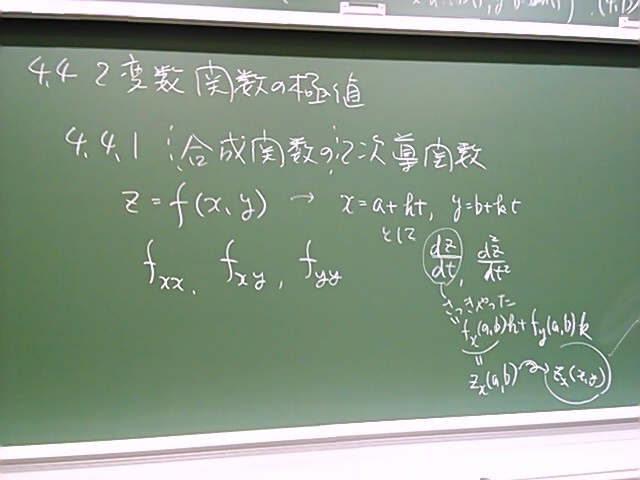 4.4 2変数関数の極値
4.4.1 合成関数の2次導関数
z = f(x, y) → x = a + ht, y = b + kt
として dz/dt, d²z/dt²
f_xx, f_xy, f_yy
さっきやった
= f_x(a,b)h + f_y(a,b)k
=
z_x(a,b) z_x(x,y)